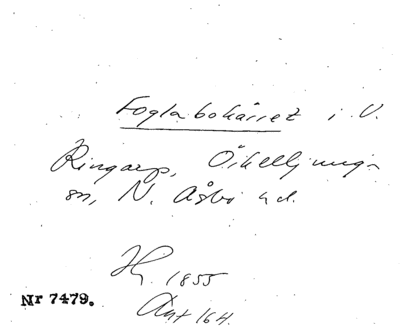 Foglabokärret i V.
Ringarp, Örkelljunga
sn, N. Åsbo hd.
Hy. 1855
Ant 164.
Nr 7479.